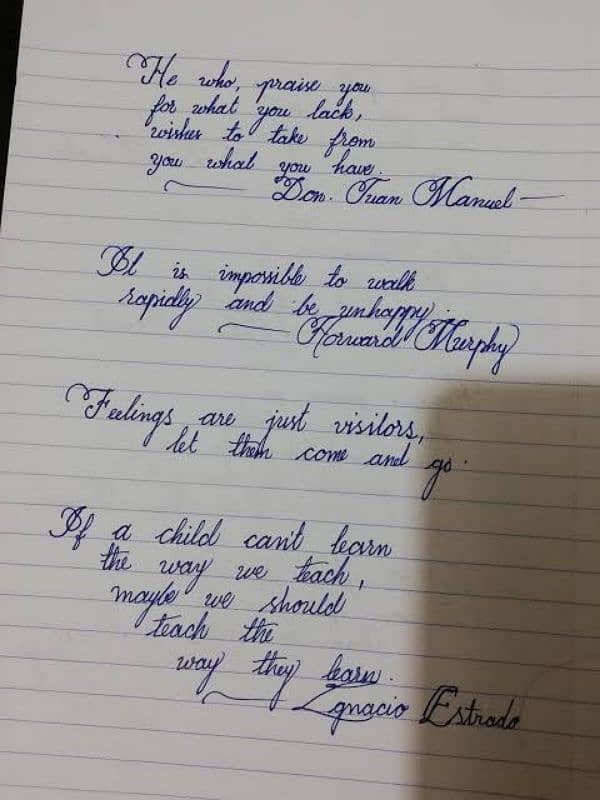 He who, praise you
for what you lack,
wishes to take from
you what you have.
Don. Juan Manuel
It is impossible to walk
rapidly and be unhappy.
Horward Murphy
Feelings are just visitors,
let them come and go.
If a child can't learn
the way we teach,
maybe we should
teach the
way they learn.
Ignacio Estrada